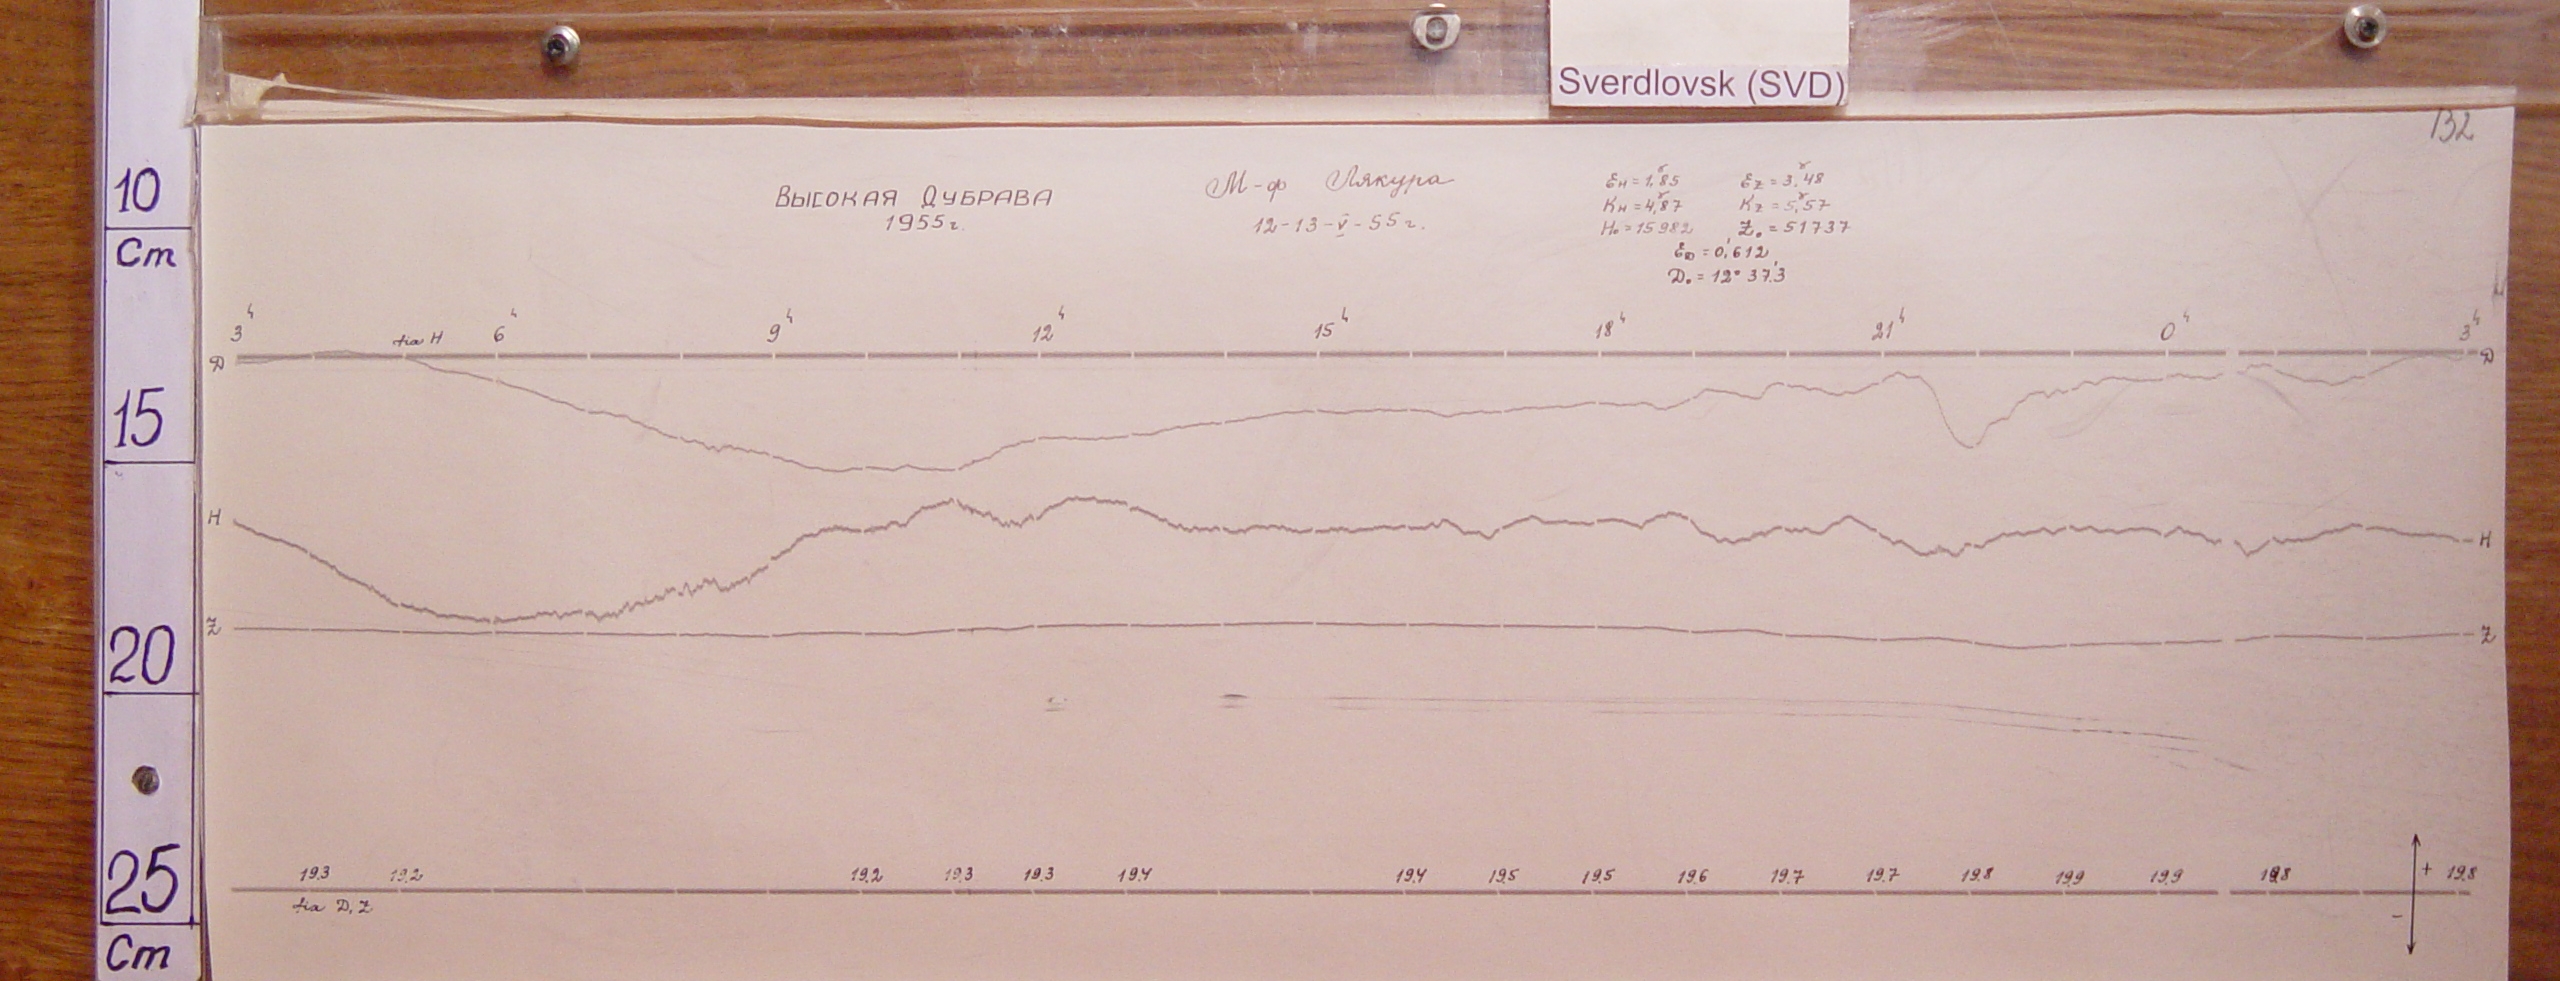 Sverdlovsk (SVD)
132
10
Cm
15
20
25
Cm
Высокая Дубрава
1955 г.
М-ф Лякура
12-13-V-55 г.
Ɛн = 1,ˠ85 Ɛz = 3,ˠ48
Kн = 4,ˠ87 Kz = 5,ˠ57
H₀ = 15982 Z₀ = 51737
ƐD = 0,′612
D₀ = 12° 37,′3
3ч 6ч 9ч 12ч 15ч 18ч 21ч 0ч 3ч
tia H
D D
H H
Z Z
19.3 19.2 19.2 19.3 19.3 19.4 19.4 19.5 19.5 19.6 19.7 19.7 19.8 19.9 19.9 19.8 + 19.8
tia D, Z
-